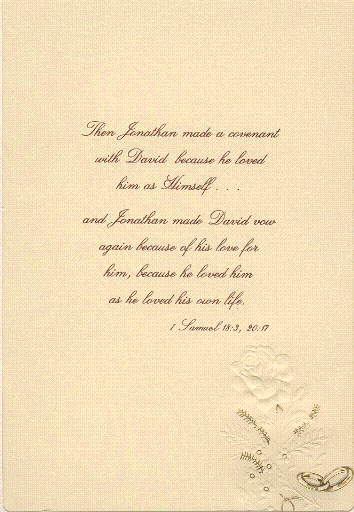 Then Jonathan made a covenant
with David because he loved
him as Himself . . .
and Jonathan made David vow
again because of his love for
him, because he loved him
as he loved his own life.
1 Samuel 18:3, 20:17